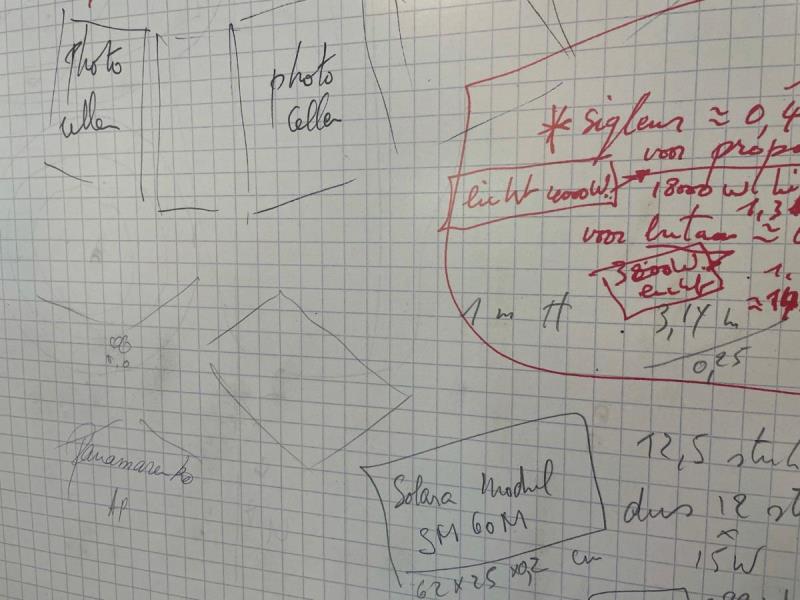 Photo
cellen
photo
cellen
* sigleur ≈ 0,4
voor propa
licht 4000W.
18000 W
1,3
voor butaan ≈
3800W.
licht
1 m H
3,14 h
0,25
Panamarenko
AP
Solara Modul
SM 60M
62 x 25 x 0,2 cm
12,5 stuk
dus 12 st
x
15W